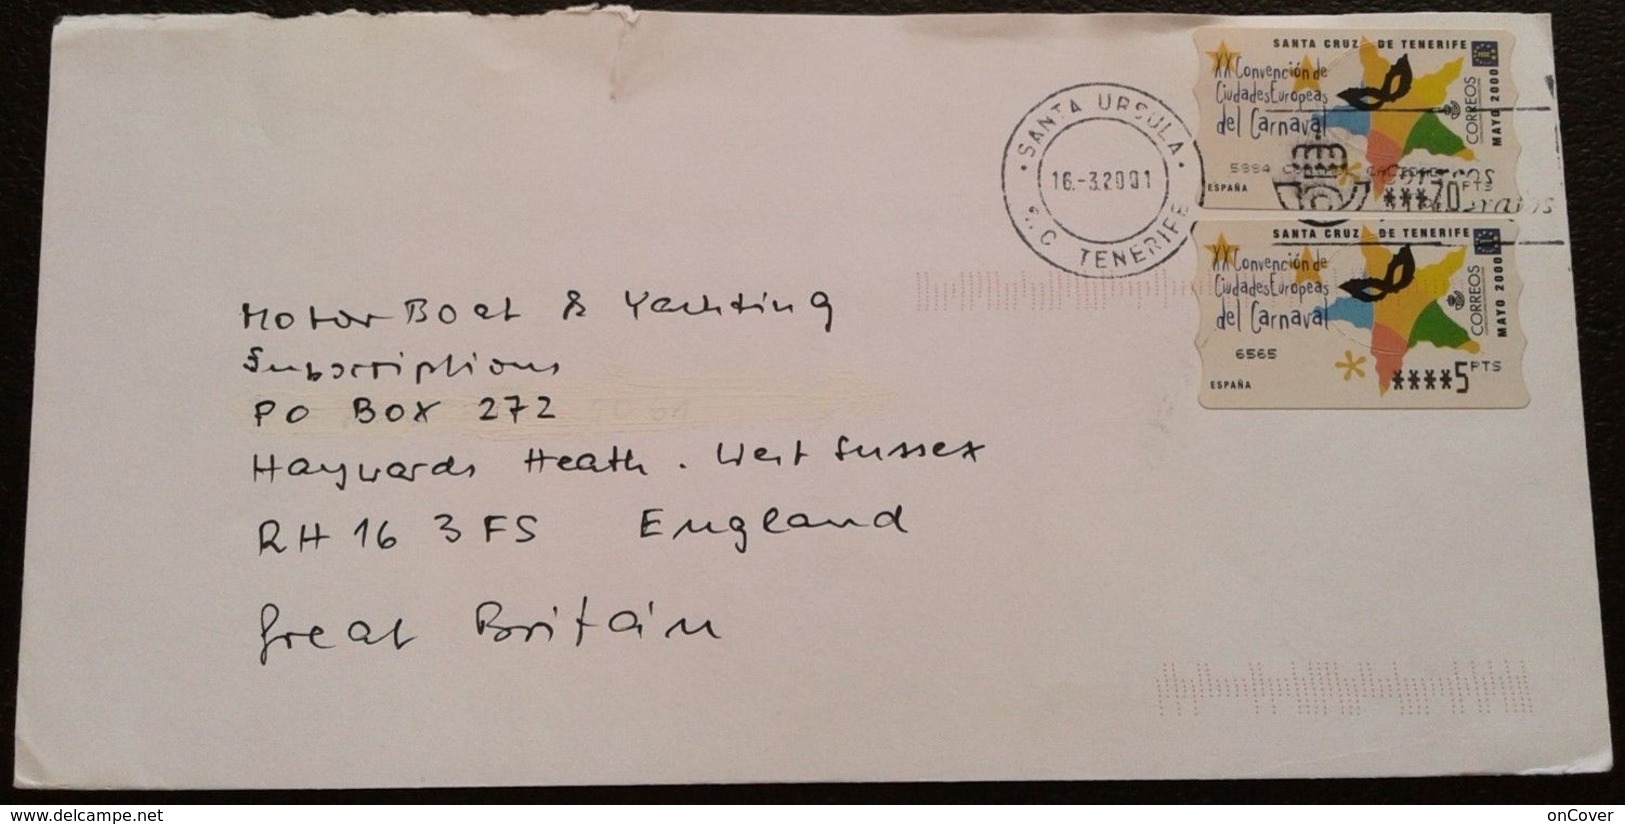 SANTA CRUZ DE TENERIFE
XX Convención de
Ciudades Europeas
del Carnaval
CORREOS
MAYO 2000
ESPAÑA
***70 PTS
SANTA URSULA
16.-3.2001
S.C TENERIFE
SANTA CRUZ DE TENERIFE
XX Convención de
Ciudades Europeas
del Carnaval
CORREOS
MAYO 2000
6565
ESPAÑA
****5 PTS
Motor Boat & Yachting
Subscriptions
PO BOX 272
Haywards Heath. West Sussex
RH16 3FS England
Great Britain
delcampe.net
onCover